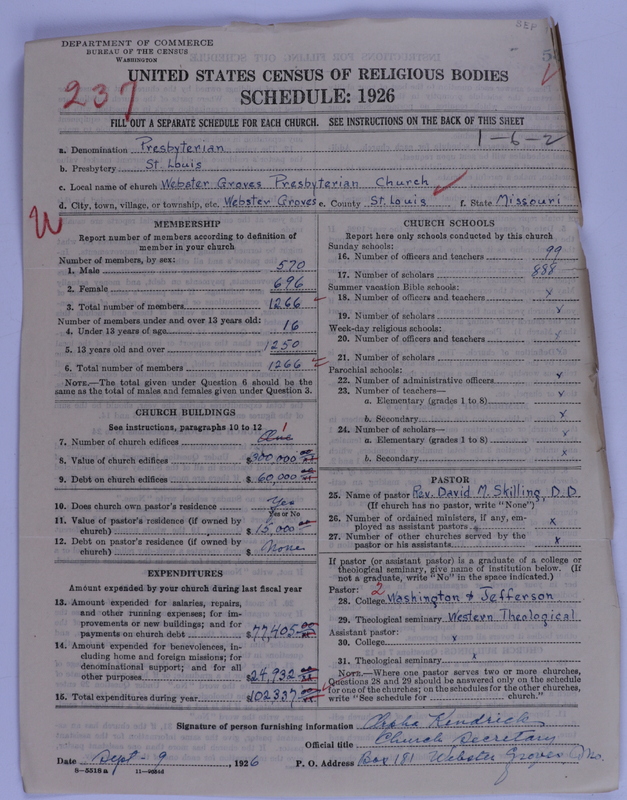 SEP
DEPARTMENT OF COMMERCE
BUREAU OF THE CENSUS
WASHINGTON
UNITED STATES CENSUS OF RELIGIOUS BODIES
237
SCHEDULE: 1926
FILL OUT A SEPARATE SCHEDULE FOR EACH CHURCH. SEE INSTRUCTIONS ON THE BACK OF THIS SHEET
1-6-2
a. Denomination Presbyterian
b. Presbytery St. Louis
c. Local name of church Webster Groves Presbyterian Church
d. City, town, village, or township, etc. Webster Groves e. County St. Louis f. State Missouri
W
MEMBERSHIP
Report number of members according to definition of
member in your church
Number of members, by sex:
1. Male 570
2. Female 696
3. Total number of members 1266
Number of members under and over 13 years old:
4. Under 13 years of age 16
5. 13 years old and over 1250
6. Total number of members 1266
NOTE.—The total given under Question 6 should be the
same as the total of males and females given under Question 3.
CHURCH BUILDINGS
See instructions, paragraphs 10 to 12
1
7. Number of church edifices One
8. Value of church edifices $300,000 00
9. Debt on church edifices $60,000 00
10. Does church own pastor's residence Yes
Yes or No
11. Value of pastor's residence (if owned by
church) $15,000 00
12. Debt on pastor's residence (if owned by
church) $ None
EXPENDITURES
Amount expended by your church during last fiscal year
13. Amount expended for salaries, repairs,
and other running expenses; for im-
provements or new buildings; and for
payments on church debt $77,405
14. Amount expended for benevolences, in-
cluding home and foreign missions; for
denominational support; and for all
other purposes $24,932
15. Total expenditures during year $102337
CHURCH SCHOOLS
Report here only schools conducted by this church
Sunday schools:
16. Number of officers and teachers 99
17. Number of scholars 888
Summer vacation Bible schools:
18. Number of officers and teachers x
19. Number of scholars x
Week-day religious schools:
20. Number of officers and teachers x
21. Number of scholars
Parochial schools:
22. Number of administrative officers x
23. Number of teachers—
a. Elementary (grades 1 to 8) x
b. Secondary x
24. Number of scholars—
a. Elementary (grades 1 to 8) x
b. Secondary x
PASTOR
25. Name of pastor Rev. David M. Skilling, D. D.
(If church has no pastor, write "None")
26. Number of ordained ministers, if any, em-
ployed as assistant pastors x
27. Number of other churches served by the
pastor or his assistants x
If pastor (or assistant pastor) is a graduate of a college or
theological seminary, give name of institution below. (If
not a graduate, write "No" in the space indicated.)
Pastor: 2
28. College Washington & Jefferson
29. Theological seminary Western Theological
Assistant pastor:
30. College x
31. Theological seminary x
NOTE.—Where one pastor serves two or more churches,
Questions 28 and 29 should be answered only on the schedule
for one of the churches; on the schedules for the other churches,
write "See schedule for church."
Signature of person furnishing information Reba Kendrick
Official title Church Secretary
Date Sept-9, 1926 P. O. Address Box 181 Webster Groves Mo.
8—5518 a